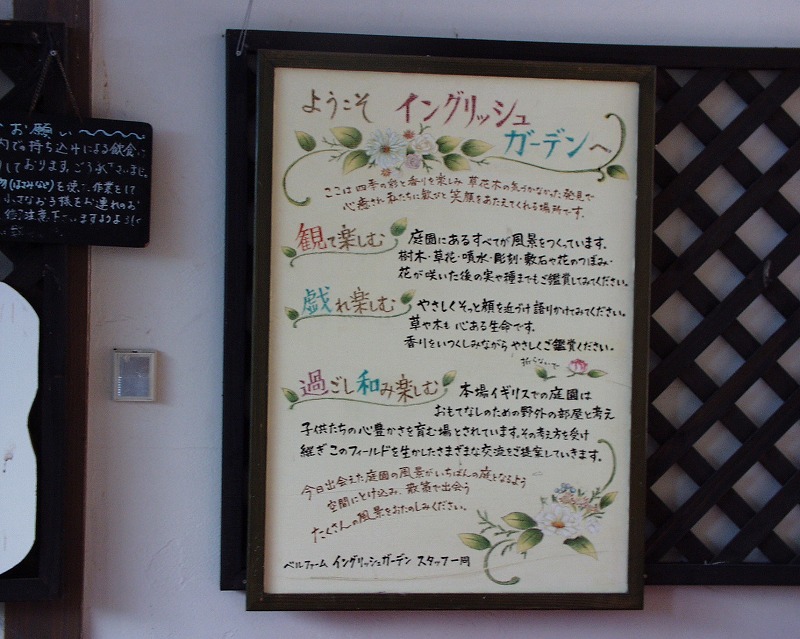 お願い
内での持ち込みによる飲食は
しております。ごう承くださいませ。
(はさみなど)を使い、作業をして
小さなお子様をお連れのお
ご注意下さいますようよろしく
ようこそ イングリッシュ
ガーデンへ
ここは四季の彩と香りを楽しみ 草花木の気づかなかった発見で
心癒され 私たちに歓びと笑顔をあたえてくれる場所です。
観て楽しむ
庭園にあるすべてが風景をつくっています。
樹木・草花・噴水・彫刻・敷石や花のつぼみ・
花が咲いた後の実や種までもご鑑賞してみてください。
戯れ楽しむ
やさしくそっと顔を近づけ語りかけてみてください。
草や木も心ある生命です。
香りをいつくしみながら やさしくご鑑賞ください。
折らないで
過ごし和み楽しむ
本場イギリスでの庭園は
おもてなしのための野外の部屋と考え
子供たちの心豊かさを育む場とされています。その考え方を受け
継ぎこのフィールドを生かしたさまざまな交流をご提案していきます。
今日出会えた庭園の風景がいちばんの庭となるよう
空間にとけ込み、散策で出会う
たくさんの風景をおたのしみください。
ベルファーム イングリッシュガーデン スタッフ一同